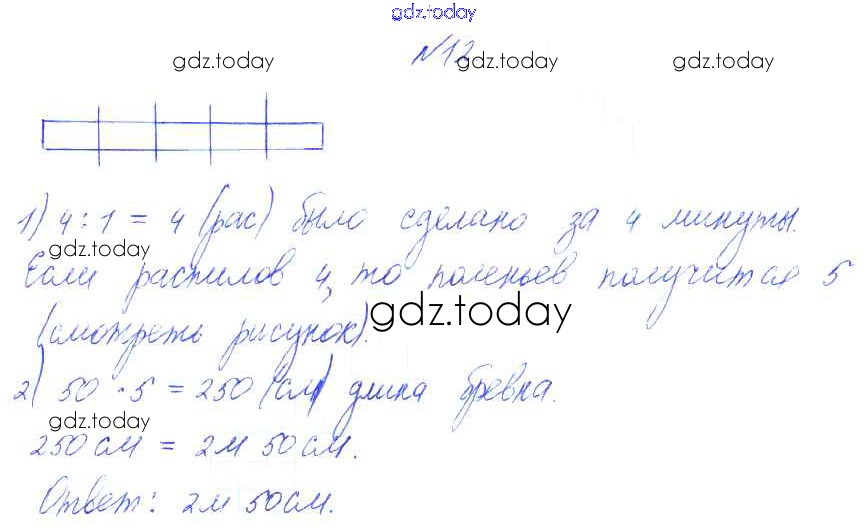 gdz.today
№12
gdz.today gdz.today gdz.today
1) 4 : 1 = 4 (рас) было сделано за 4 минуты.
gdz.today
Если распилов 4, то поленьев получится 5
(смотреть рисунок).
gdz.today
2) 50 · 5 = 250 (см) длина бревна.
gdz.today
250 см = 2м 50 см.
Ответ: 2м 50см.